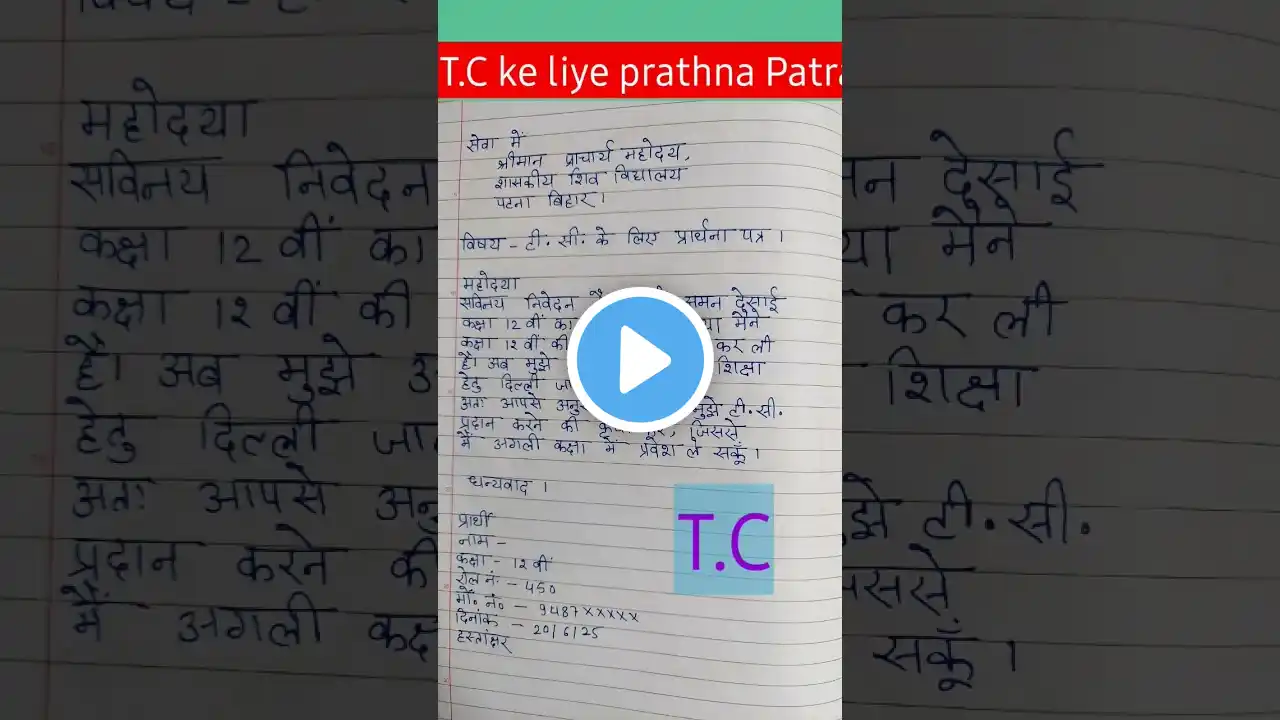 T.C ke liye prathna Patra
सेवा में
श्रीमान प्राचार्य महोदय,
शासकीय शिव विद्यालय
पटना बिहार।
विषय - टी. सी. के लिए प्रार्थना पत्र ।
महोदया
सविनय निवेदन है समन देसाई
कक्षा 12 वीं का मैंने
कक्षा 12 वीं की कर ली
है। अब मुझे शिक्षा
हेतु दिल्ली
अतः आपसे मुझे टी. सी.
प्रदान करने की जिससे
मैं अगली कक्षा में प्रवेश ले सकूँ ।
धन्यवाद ।
T.C
प्रार्थी
नाम -
कक्षा - 12 वीं
रोल नं. - 450
मो. नं. - 9487×××××
दिनांक - 20/6/25
हस्तांक्षर